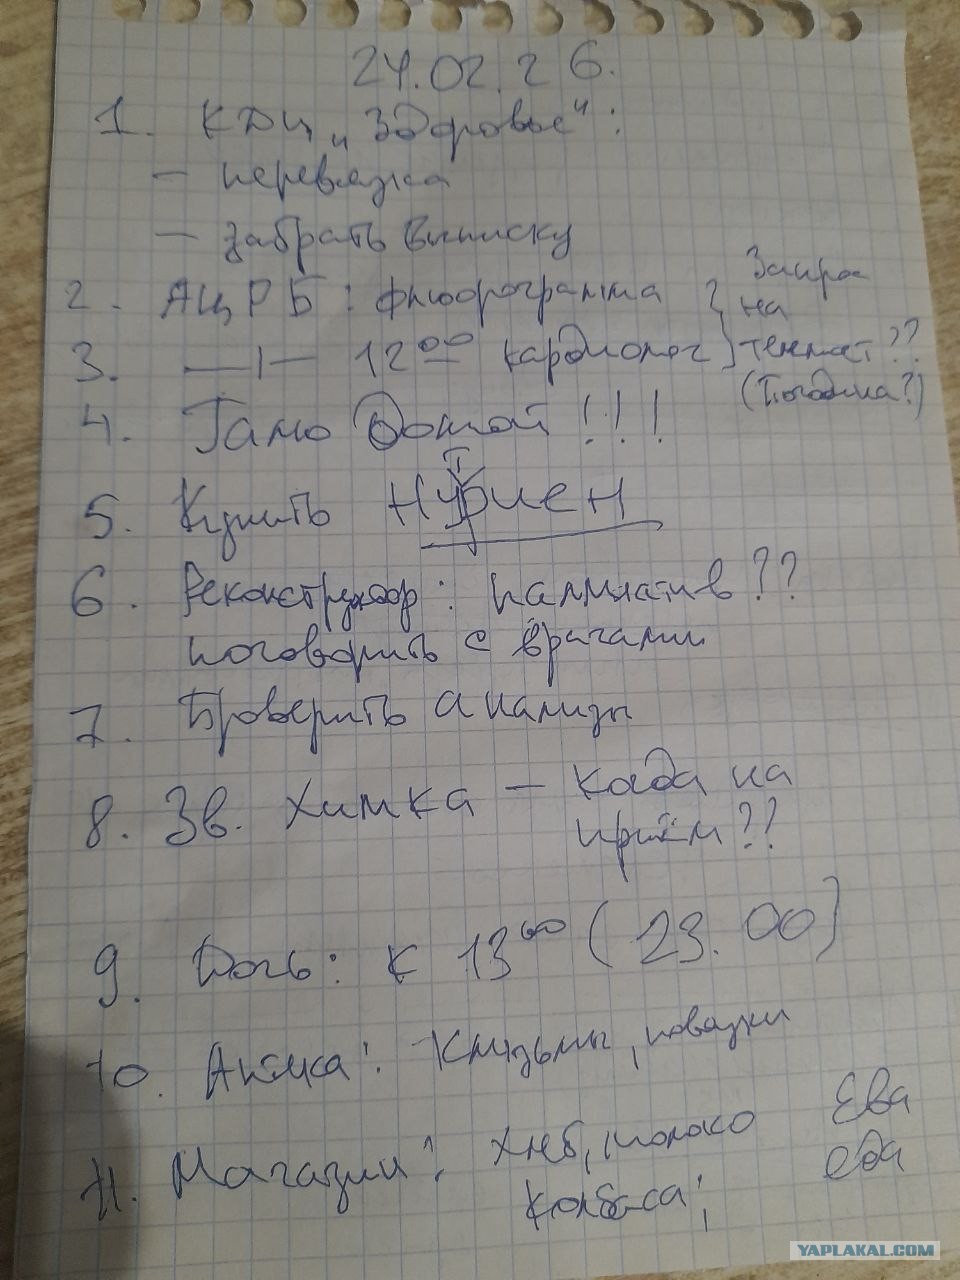 24.02.26.
1. КДЦ „Здоровье":
— перевязка
— забрать выписку
2. АЦРБ: флюорограмма
3. —"— 12⁰⁰ кардиолог
на
(Погодина?)
4. Домой!!!
5. Купить Нутриен
6. Реконструктор: паллиатив??
поговорить с врачами
7. Проверить анализы
8. Зв. Химка — когда на
приём??
9. Дочь: к 13⁰⁰ (23.00)
10. Аптека: Клизмы, повязки
11. Магазин: хлеб, молоко
колбаса;
Ева
еда
YAPLAKAL.COM